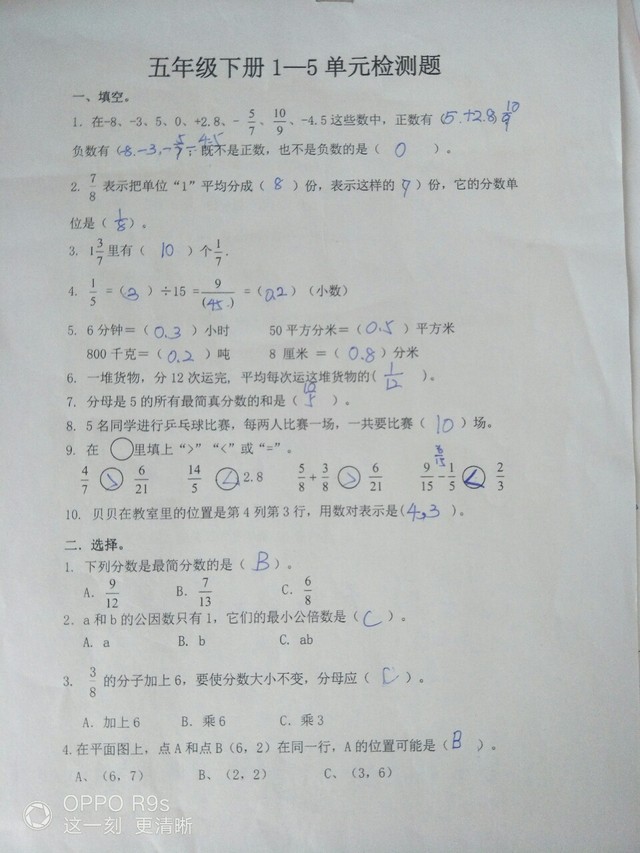 五年级下册1—5单元检测题
一、填空。
1. 在-8、-3、5、0、+2.8、- 5/7、10/9、-4.5这些数中，正数有（5.+2.8, 10/9
负数有（-8.-3,-5/7 -4.5 既不是正数，也不是负数的是（ 0 ）。
2. 7/8 表示把单位“1”平均分成（ 8 ）份，表示这样的（ 7 ）份，它的分数单
位是（ 1/8 ）。
3. 1 3/7 里有（ 10 ）个 1/7 .
4. 1/5 =（ 3 ）÷15 = 9/(45.) =（ 0.2 ）（小数）
5. 6分钟＝（ 0.3 ）小时 50平方分米＝（ 0.5 ）平方米
800千克＝（ 0.2 ）吨 8 厘米 ＝（ 0.8 ）分米
6. 一堆货物，分12次运完，平均每次运这堆货物的( 1/12 )。
7. 分母是5的所有最简真分数的和是（ 10/5 ）。
8. 5名同学进行乒乓球比赛，每两人比赛一场，一共要比赛（ 10 ）场。
9. 在 ○里填上“>”“<”或“=”。
4/7 > 6/21 14/5 < 2.8 5/8 + 3/8 > 6/21 9/15 - 1/5 < 2/3
10. 贝贝在教室里的位置是第4列第3行，用数对表示是(4,3 )。
二．选择。
1. 下列分数是最简分数的是（ B ）。
A. 9/12 B. 7/13 C. 6/8
2. a和b的公因数只有1，它们的最小公倍数是（ C ）。
A. a B. b C. ab
3. 3/8 的分子加上6，要使分数大小不变，分母应（ C ）。
A. 加上6 B. 乘6 C. 乘3
4.在平面图上，点A和点B（6，2）在同一行，A的位置可能是（ B ）。
A、（6，7） B、（2，2） C、（3，6）
OPPO R9s
这一刻 更清晰